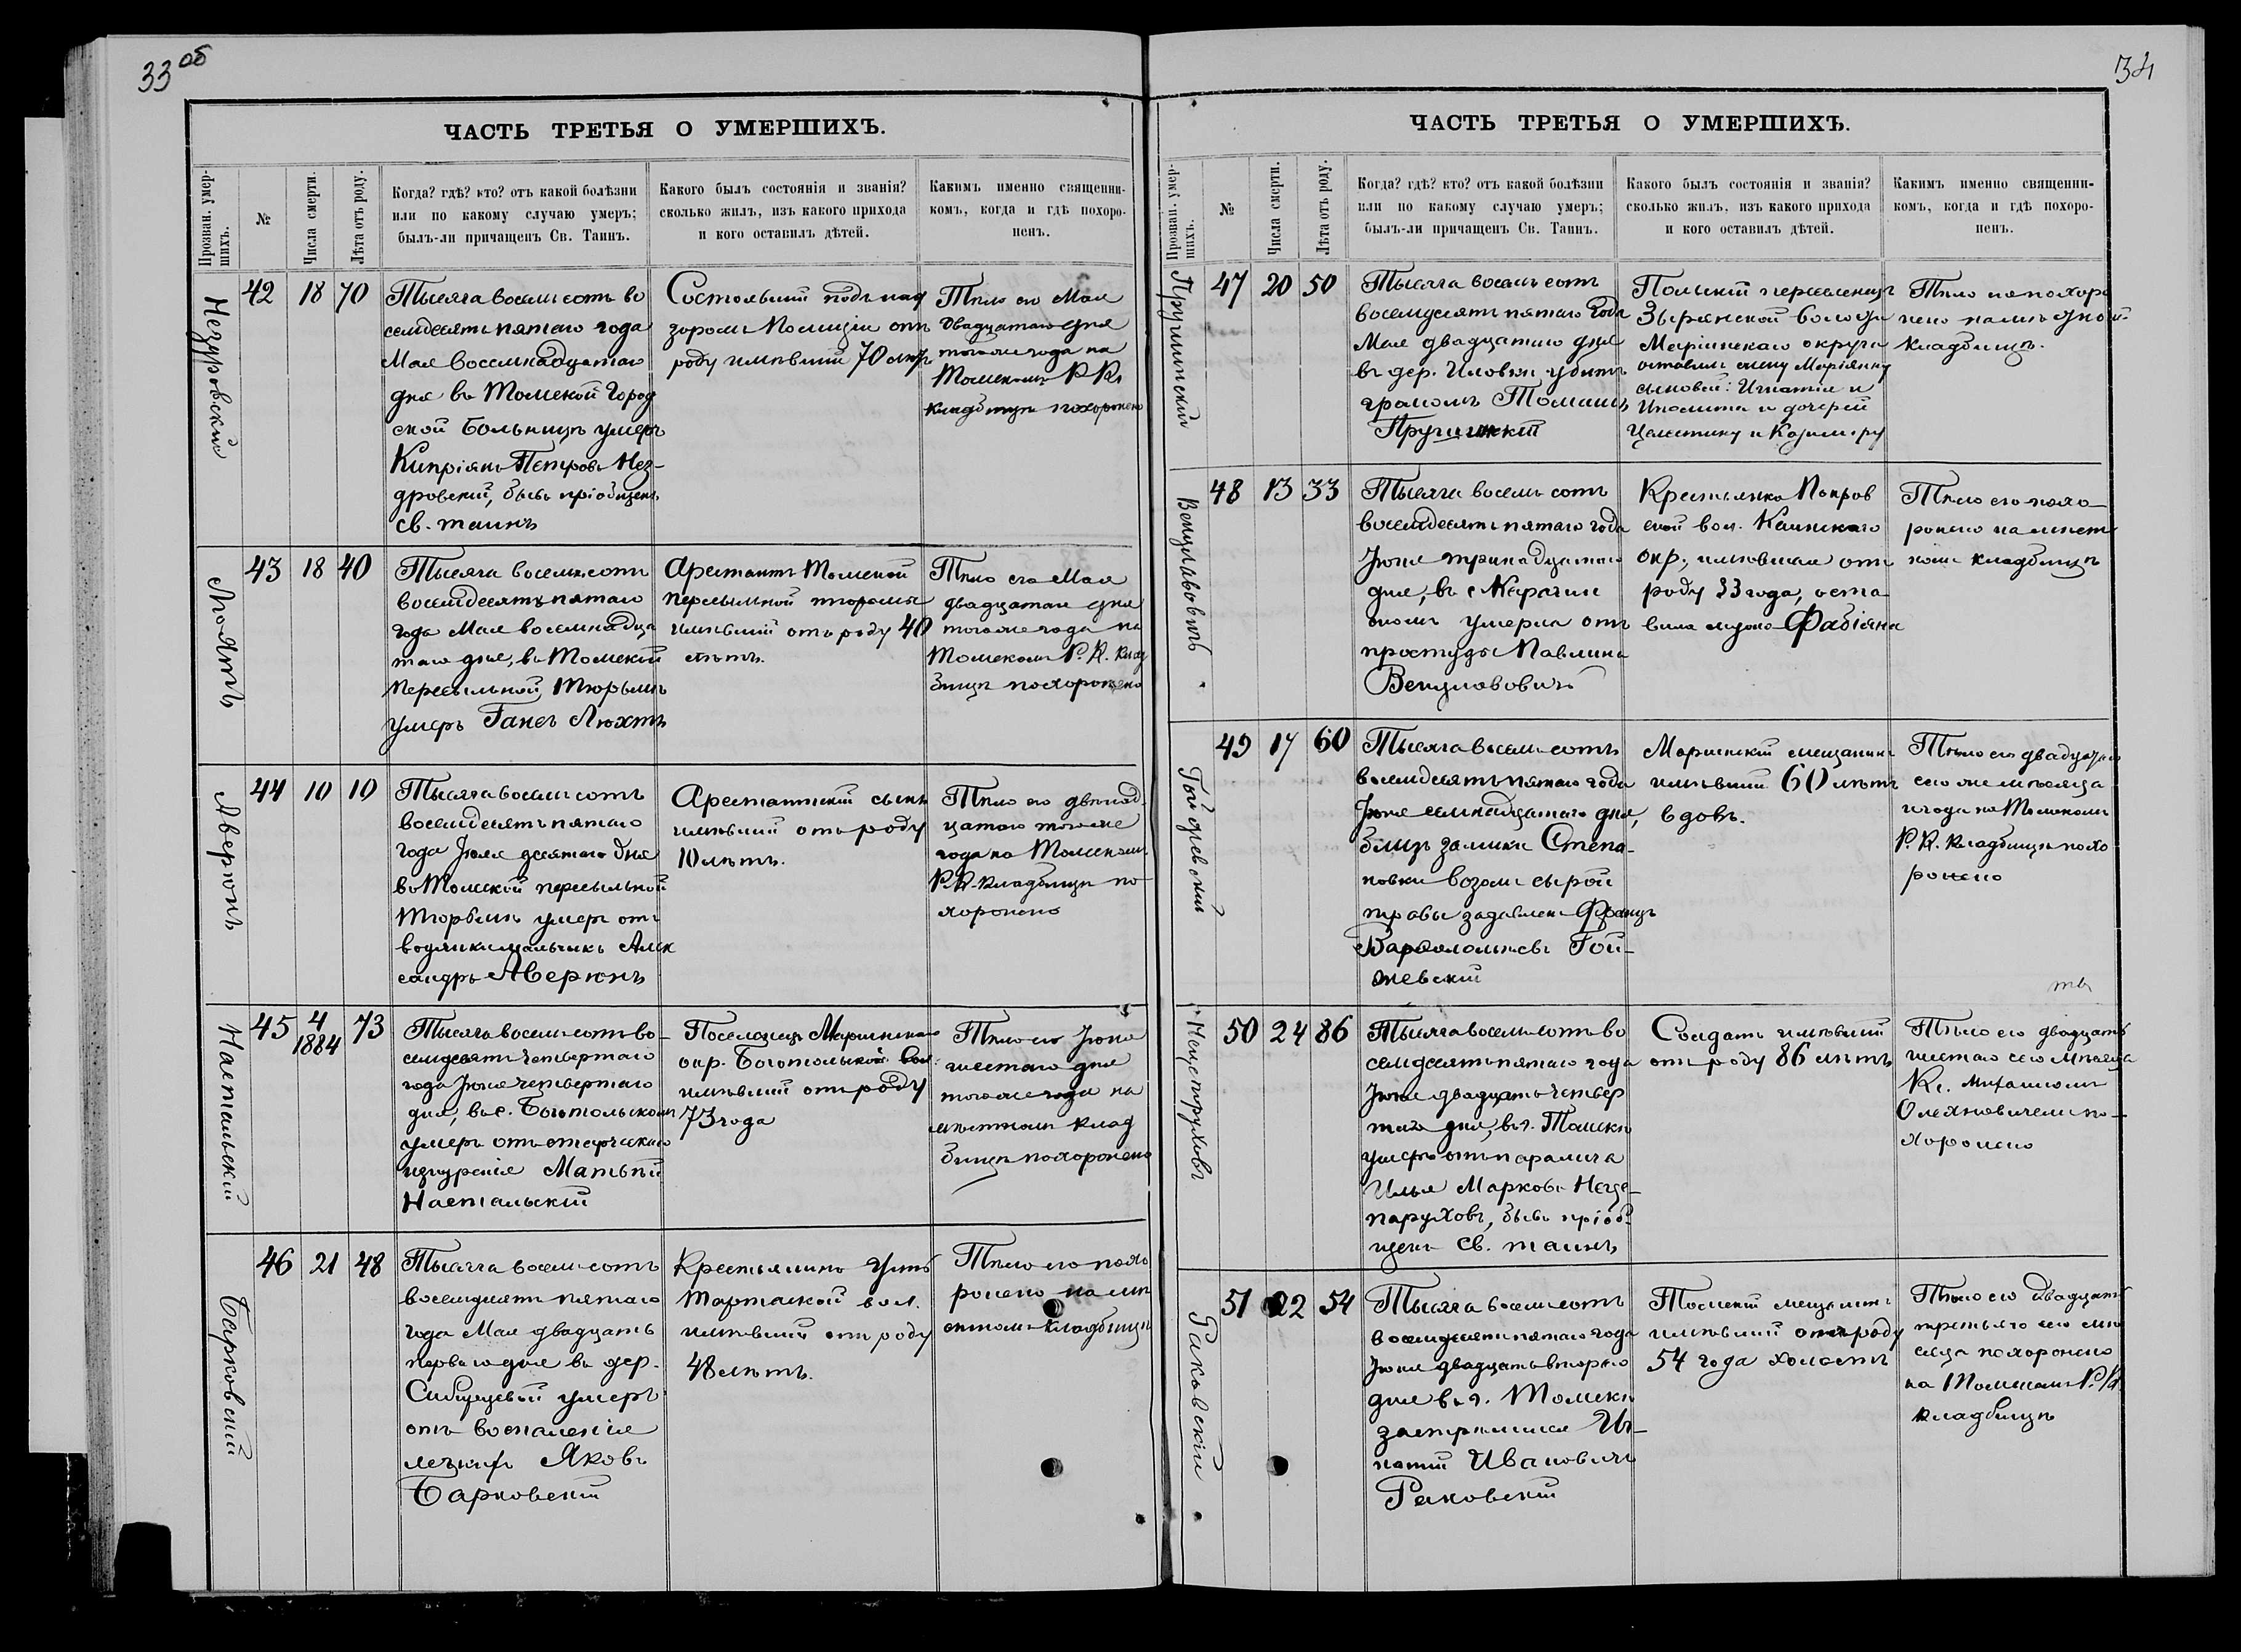 33 об
ЧАСТЬ ТРЕТЬЯ О УМЕРШИХЪ.
Прозван. умер-
шихъ.
№
Числа смерти.
Лѣта отъ роду.
Когда? гдѣ? кто? отъ какой болѣзни
или по какому случаю умеръ;
былъ-ли причащенъ Св. Таинъ.
Какого былъ состоянія и званія?
сколько жилъ, изъ какого прихода
и кого оставилъ дѣтей.
Какимъ именно священни-
комъ, когда и гдѣ похоро-
ненъ.
42
18
70
Тысяча восемь сотъ во
семдесять пятаго года
Мая восемнадцатаго
дня въ Томской Город
ской Больницѣ умеръ
Кипріянъ Петровъ Нез-
дровскій, бывъ пріобщенъ
св. таинъ
Состоявшій подъ над
зоромъ Полиціи отъ
роду имѣвшій 70 лѣтъ
Тѣло его Мая
двадцатаго дня
тогоже года на
Томскомъ Р. К.
кладбищѣ похоронено
Люятъ
43
18
40
Тысяча восемь сотъ
восемдесятъ пятаго
года Мая восемнадца
таго дня, въ Томской
Пересыльной Тюрьмѣ
умеръ Гансъ Люхтъ
Арестантъ Томской
пересыльной тюрьмы
имѣвшій отъ роду 40
лѣтъ.
Тѣло его Мая
двадцатаго дня
тогоже года на
Томскомъ Р. К. клад
бищѣ похоронено
Аверюнъ
44
10
10
Тысяча восемь сотъ
восемдесятъ пятаго
года Іюля десятаго дня
въ Томской пересыльной
Тюрьмѣ умеръ отъ
водянки мальчикъ Алек
сандръ Аверюнъ
Арестантскій сынъ
имѣвшій отъ роду
10 лѣтъ.
Тѣло его двѣнад
цатаго тогоже
года на Томскомъ
Р. К. кладбищѣ по
хоронено
Настальскій
45
4
1884
73
Тысяча восемь сотъ во-
семдесятъ четвертаго
года Іюня четвертаго
дня, въ с. Боготольскомъ
умеръ отъ старческаго
изнуренія Матвѣй
Настальскій
Поселенецъ Маріинскаго
окр. Боготольской вол.
имѣвшій отъ роду
73 года
Тѣло его Іюня
шестаго дня
тогоже года на
мѣстномъ клад
бищѣ похоронено
Барковскій
46
21
48
Тысяча восемь сотъ
восемдесятъ пятаго
года Мая двадцать
перваго дня въ дер.
умеръ
отъ воспаленія
легкихъ Яковъ
Барковскій
Крестьянинъ Усть
Тартаской вол.
имѣвшій отъ роду
48 лѣтъ.
Тѣло его похо
ронено на мѣ
стномъ кладбищѣ
34
ЧАСТЬ ТРЕТЬЯ О УМЕРШИХЪ.
Прозван. умер-
шихъ.
№
Числа смерти.
Лѣта отъ роду.
Когда? гдѣ? кто? отъ какой болѣзни
или по какому случаю умеръ;
былъ-ли причащенъ Св. Таинъ.
Какого былъ состоянія и званія?
сколько жилъ, изъ какого прихода
и кого оставилъ дѣтей.
Какимъ именно священни-
комъ, когда и гдѣ похоро-
ненъ.
47
20
50
Тысяча восемь сотъ
восемдесятъ пятаго года
Мая двадцатаго дня
въ дер. Иловки убитъ
громомъ Томашъ
Польскій переселенецъ
Зырянской волости
Маріинскаго округа
оставилъ жену Маріянну
сыновей: Игнатія и
Иполита и дочерей
Целестину и Казимиру
Тѣло похоро
нено на
кладбищѣ.
Венцлавовичъ
48
13
33
Тысяча восемь сотъ
восемдесятъ пятаго года
Іюня тринадцатаго
дня, въ с.
умерла отъ
простуды Павлина
Венцлавовичъ
Крестьянка Покров
ской вол. Каинскаго
окр., имѣвшая отъ
роду 33 года, оста
вила мужа Фабіяна
Тѣло его похо
ронено на мѣст
номъ кладбищѣ
49
17
60
Тысяча восемь сотъ
восемдесятъ пятаго года
Іюня семнадцатаго дня,
близъ заимки Степа-
новки возомъ сырой
травы задавленъ Францъ
Варѳоломѣевъ Гой-
жевскій
Маріинскій мещанинъ
имѣвшій 60 лѣтъ
вдовъ.
Тѣло его двадцатаго
сего же мѣсяца
и года на Томскомъ
Р. К. кладбищѣ похо
ронено
Нещепруховъ
50
24
86
Тысяча восемь сотъ во
семдесятъ пятаго года
Іюня двадцать четвер
таго дня, въ г. Томскѣ
умеръ отъ паралича
Илья Марковъ Неще-
паруховъ, бывъ пріоб-
щенъ св. таинъ
Солдатъ имѣвшій
отъ роду 86 лѣтъ
Тѣло его двадцать
шестаго сего мѣсяца
Кс. Михаиломъ
Олехновичемъ по-
хоронено
Раковскій
51
22
54
Тысяча восемь сотъ
восемдесятъ пятаго года
Іюня двадцать втораго
дня въ г. Томскѣ
застрѣлился Иг-
натій Ивановичъ
Раковскій
Томскій мещанинъ
имѣвшій отъ роду
54 года холостъ
Тѣло его двадцать
третьяго сего мѣ
сяца похоронено
на Томскомъ Р. К.
кладбищѣ